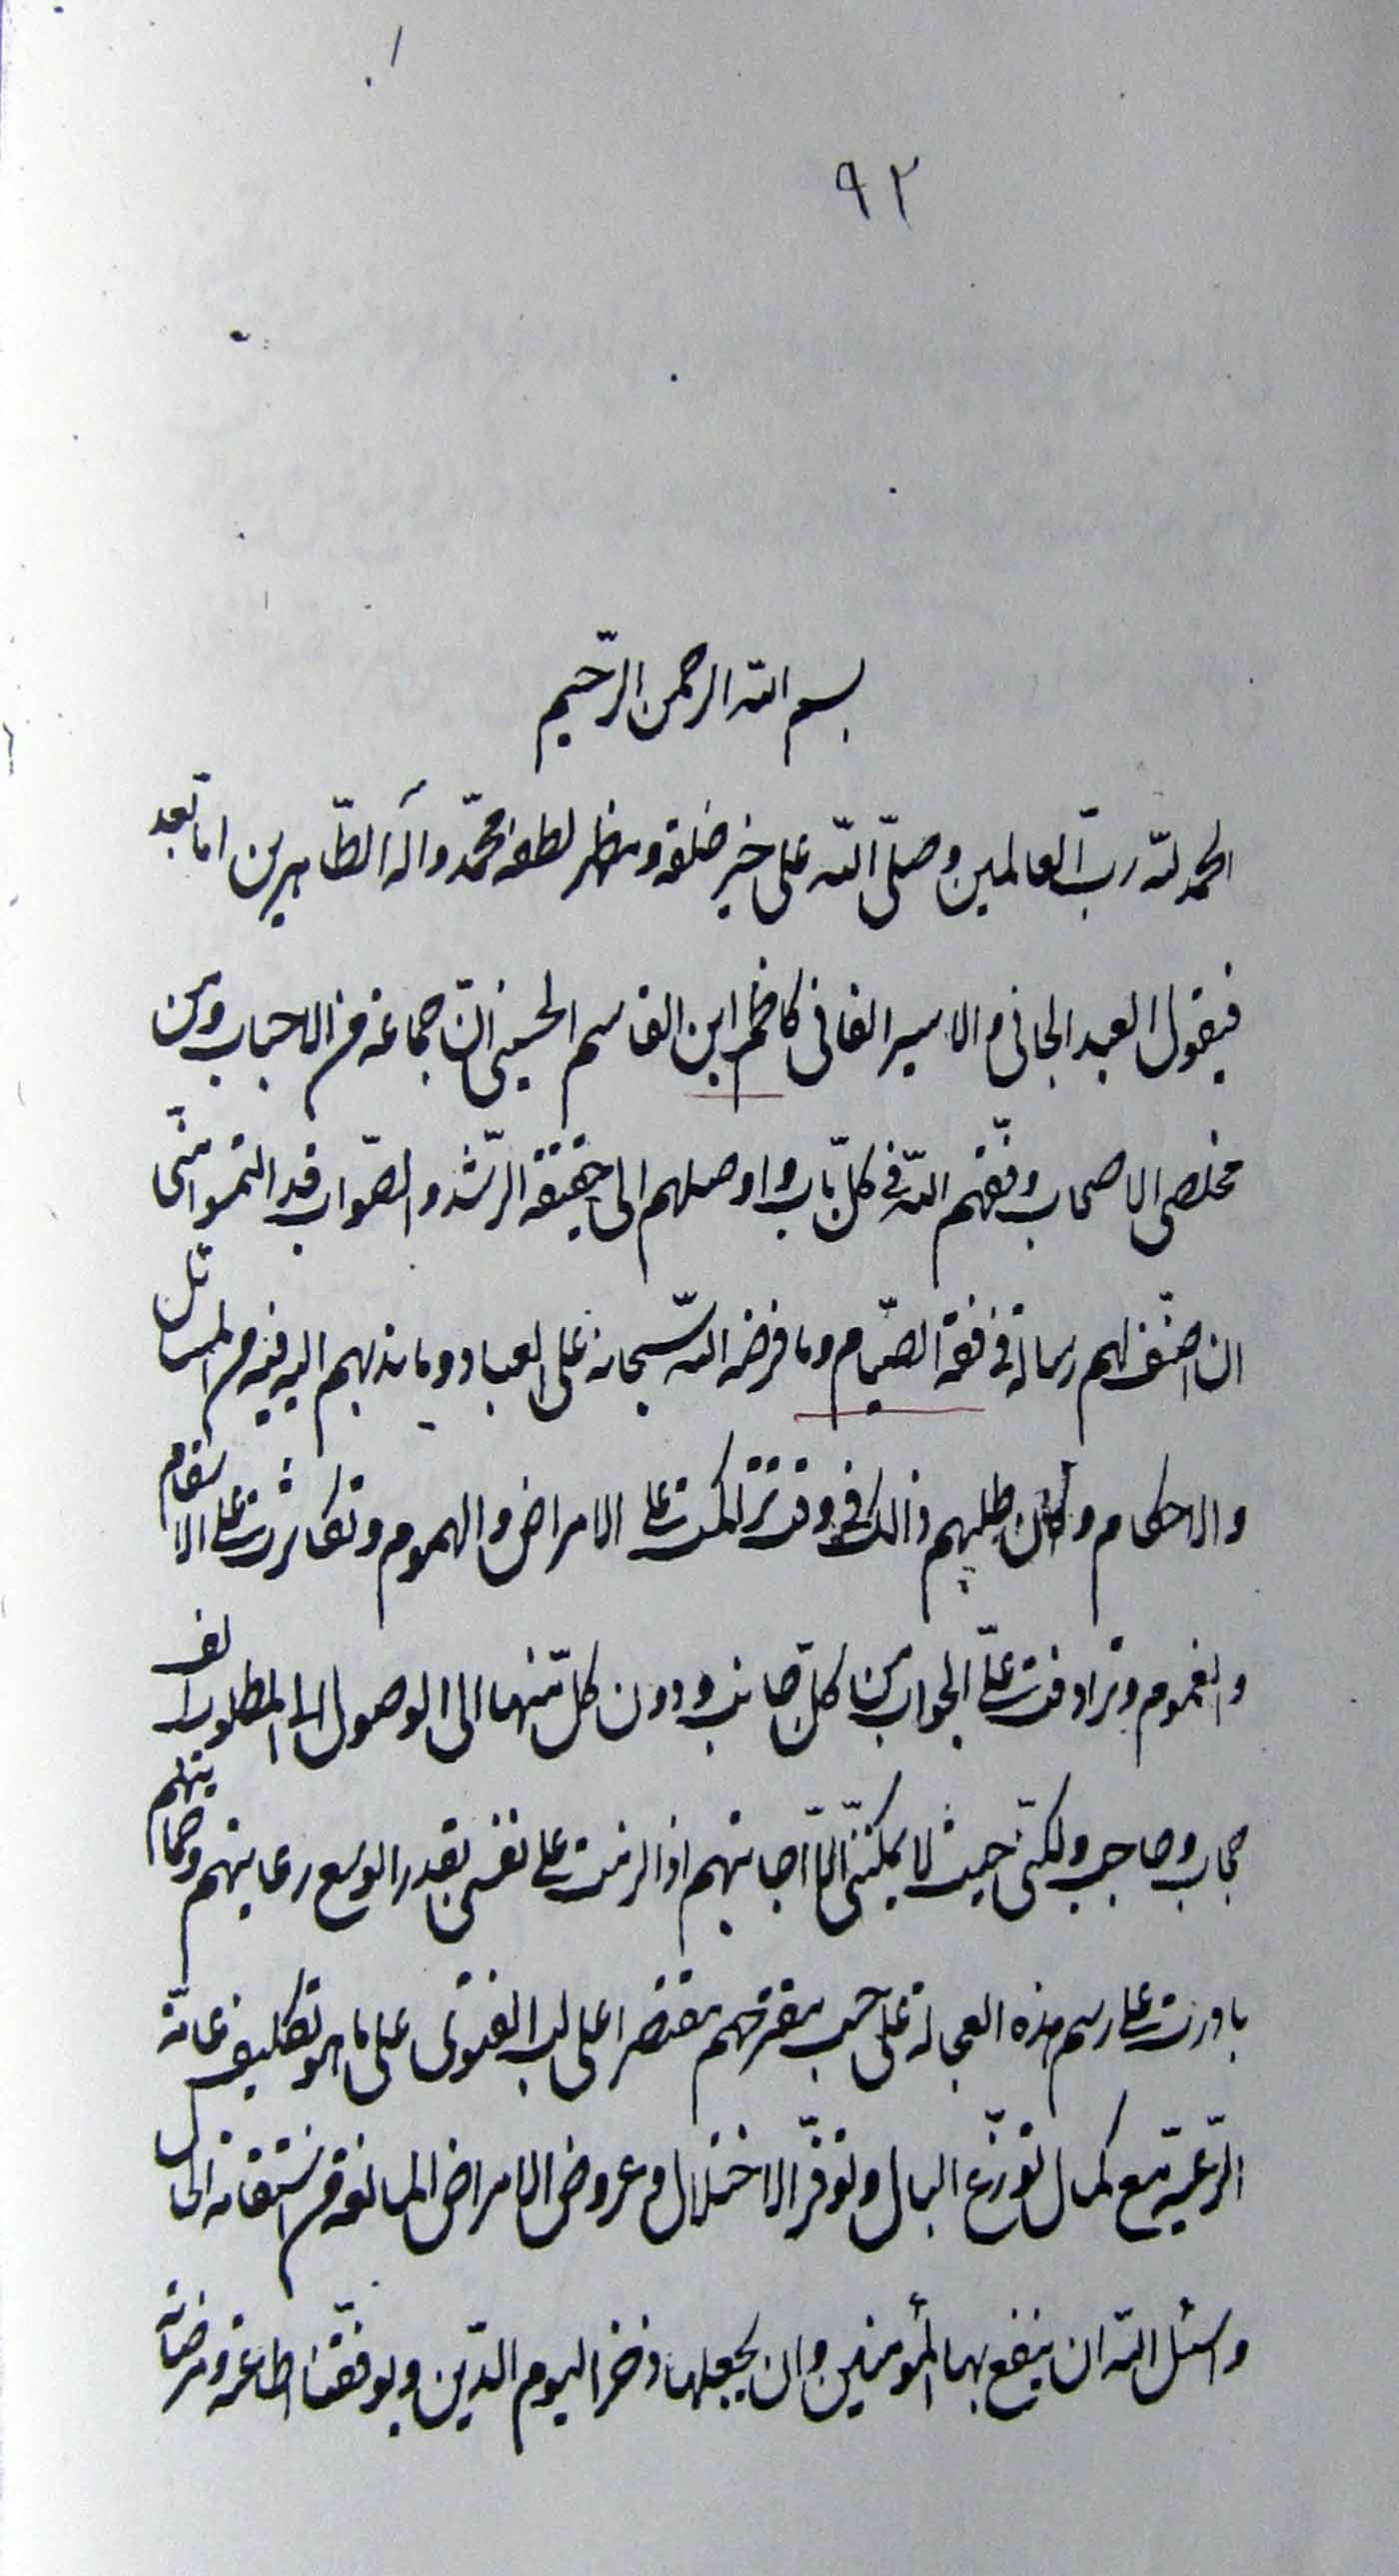 ٩٢
بسم الله الرحمن الرّحيم
الحمد لله ربّ العالمين وصلّى الله على خير خلقه ومظهر لطفه محمّد وآله الطّاهرين اما بعد
فيقول العبد الجاني والاسير الفاني كاظم ابن القاسم الحسيني انّ جماعة من الاحباب ومن
مخلصى الاصحاب وفّقهم الله في كلّ باب واوصلهم الى حقيقة الرّشد والصّواب قد التمسوا منّى
ان اصنّف لهم رسالة في فقه الصّيام وما فرضه الله سبحانه على العباد وما ندبهم اليه فيه من المسائل
والاحكام وكان طلبهم ذالك في وقت تراكمت على الامراض والهموم وتكاثرت على الاسقام
والغموم وترادفت علىّ الجواب من كلّ جانب ودون كلّ منها الى الوصول الى المطلوب الف
حجاب وحاجب ولكنّى حيث لا يمكننى الّا اجابتهم اذ الزمت على نفسى بقدر الوسع رعايتهم وحمايتهم
بادرت على رسم هذه العجالة على حسب مقترحهم مقتصرا على لب الفتوى على ما هو تكليف عامّة
الرّعيّة مع كمال توزّع البال وتوفّر الاختلال وعروض الامراض المانعة من استقامة الحال
واسئل الله ان ينفع بها المؤمنين وان يجعلها ذخرا ليوم الدّين ويوفّقنا لطاعته ومرضاته